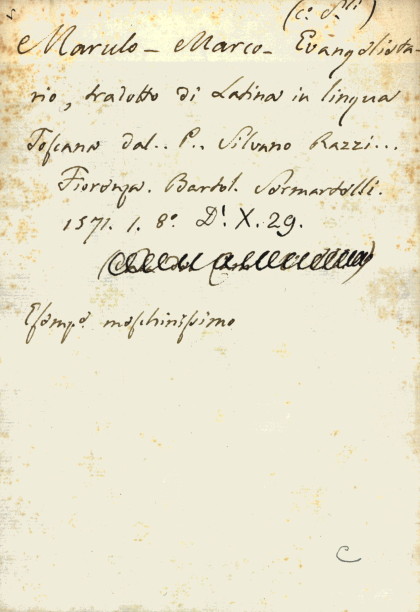 (c.
Marulo - Marco - Evangelista-
rio, tradotto di Latina in lingua
Toscana dal.. P.. Silvano Razzi...
Fiorenza. Bartol. Sermartelli.
1571. 1. 8º. D! X. 29.
Esempº. meschinissimo
C